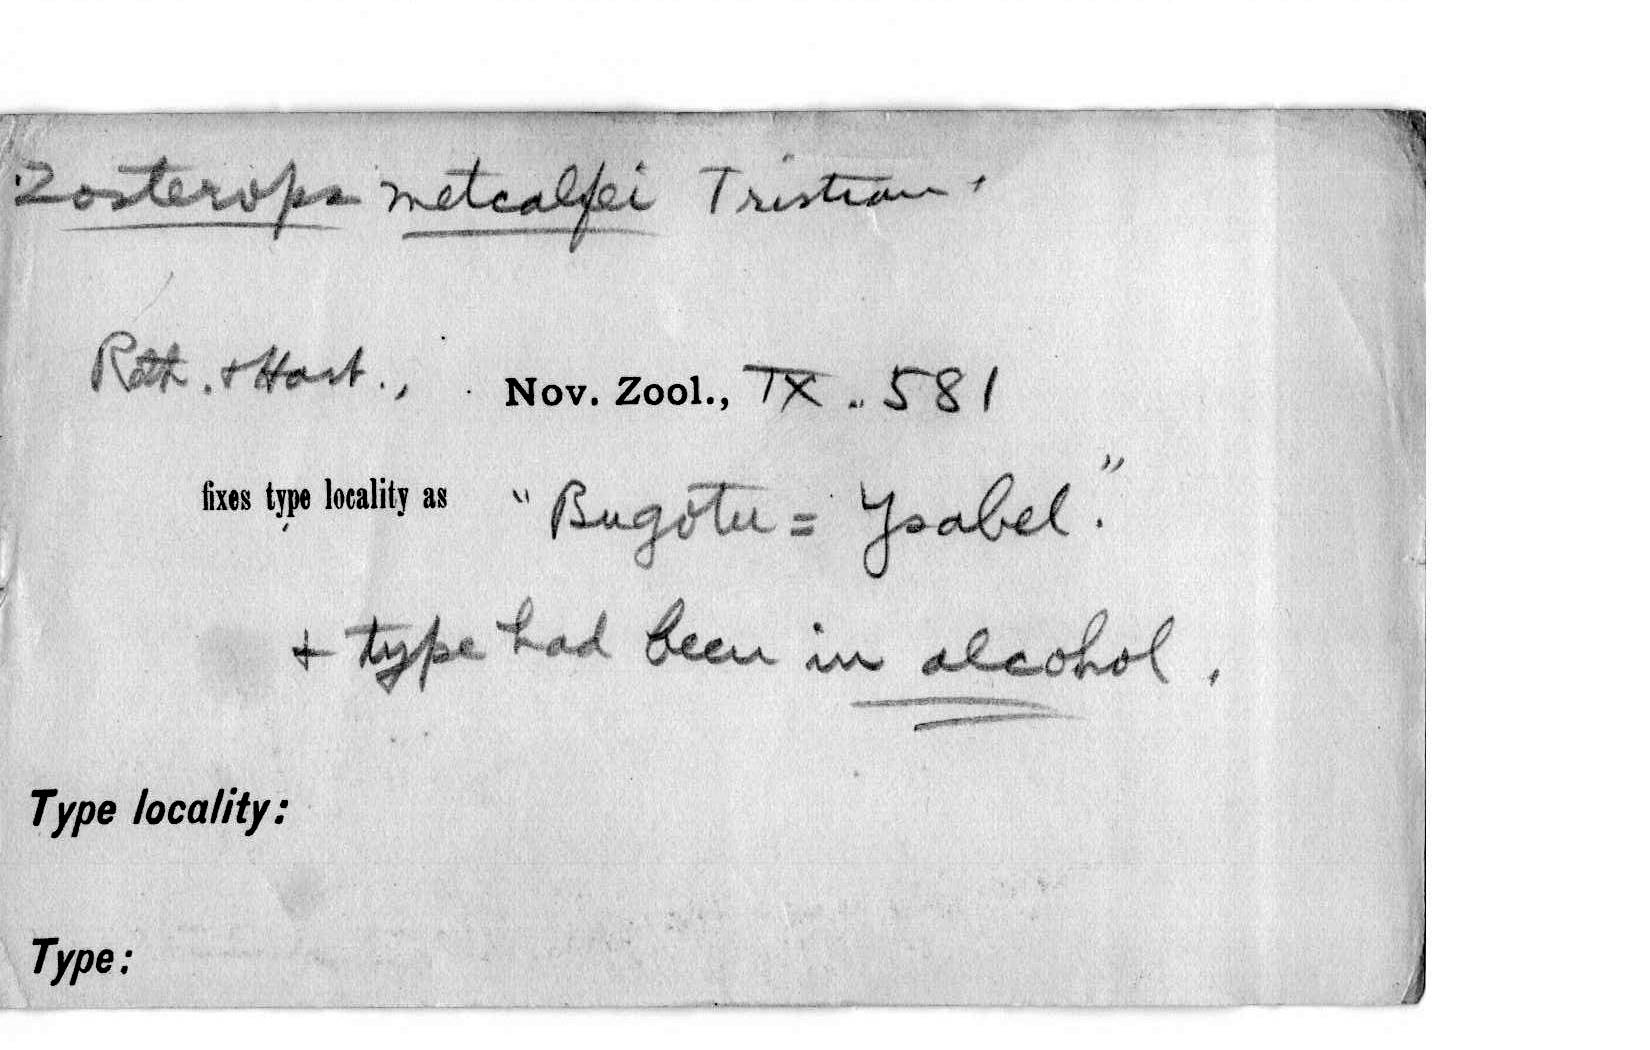 Zosterops metcalfei Tristram.
Roth. + Hart., Nov. Zool., IX. 581
fixes type locality as "Bugotu = Ysabel."
+ type had been in alcohol.
Type locality:
Type: